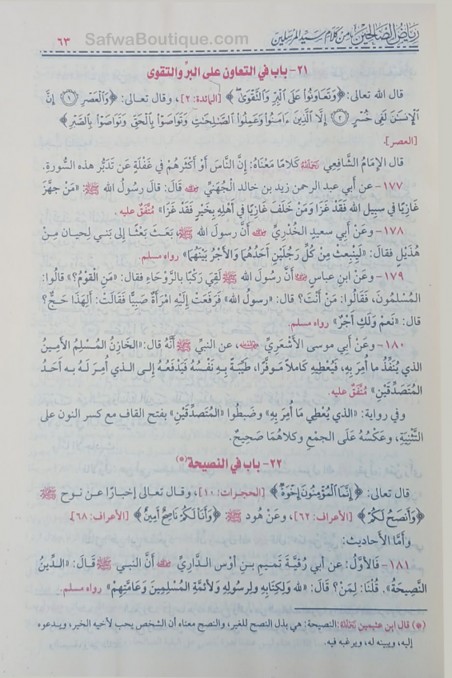 رياض الصالحين من كلام سيد المرسلين
SafwaBoutique.com
٦٣
٢١- باب في التعاون على البرِّ والتقوى
قال الله تعالى: ﴿وَتَعَاوَنُوا عَلَى الْبِرِّ وَالتَّقْوَى﴾ [المائدة: ٢]، وقال تعالى: ﴿وَالْعَصْرِ ۝١ إِنَّ
الْإِنسَانَ لَفِي خُسْرٍ ۝٢ إِلَّا الَّذِينَ ءَامَنُوا وَعَمِلُوا الصَّالِحَاتِ وَتَوَاصَوْا بِالْحَقِّ وَتَوَاصَوْا بِالصَّبْرِ﴾
[العصر].
قال الإمَامُ الشَّافِعِي رَحِمَهُ اللهُ كَلَامًا مَعْنَاهُ: إنَّ النَّاسَ أَوْ أَكْثَرَهُمْ فِي غَفْلَةٍ عَن تَدَبُّرِ هذه السُّورَةِ.
١٧٧- عن أبي عبد الرحمن زيد بن خالد الجُهَنِيِّ رضي الله عنه قَالَ: قَالَ رسُولُ الله ﷺ: «مَنْ جَهَّزَ
غَازِيًا في سبِيلِ الله فَقَدْ غَزَا وَمَنْ خَلَفَ غَازِيًا في أهْلِهِ بِخَيْرٍ فَقَدْ غَزَا» مُتَّفَقٌ عليه.
١٧٨- وعَن أبي سعيدٍ الخُدْرِيِّ رضي الله عنه أنَّ رسولَ الله ﷺ، بَعَثَ بَعْثًا إلى بَني لِحيان مِنْ
هُذَيْلٍ فقالَ: «لِيَنْبَعِثْ مِن كُلِّ رَجُلَيْنِ أَحَدُهُمَا وَالأَجْرُ بَيْنَهُمَا» رواه مسلم.
١٧٩- وعَنِ ابن عباسٍ رضي الله عنهما أنَّ رسُولَ الله ﷺ لَقِيَ رَكْبًا بالرَّوْحَاءِ فقال: «مَنِ القَوْمُ؟» قالُوا:
المُسْلِمُونَ، فَقَالُوا: مَنْ أنْتَ؟ قال: «رسولُ الله» فَرَفَعَتْ إلَيْهِ امْرَأَةٌ صَبِيًّا فَقَالَتْ: ألِهَذَا حَجٌّ؟
قال: «نَعمْ وَلَكِ أجْرٌ» رواه مسلم.
١٨٠- وعَنْ أبي موسى الأشْعَرِيِّ رضي الله عنه، عن النبي ﷺ أنَّهُ قال: «الخَازِنُ المُسْلِمُ الأمِينُ
الذي يُنَفِّذُ مَا أُمِرَ بِهِ، فَيُعْطِيهِ كَامِلًا مَوفَّرًا، طَيِّبَةً بِهِ نَفْسُهُ فَيَدْفَعُهُ إلى الذي أُمِرَ لَهُ بِهِ أَحَدُ
المُتَصَدِّقَيْنِ» مُتَّفَقٌ عليه.
وفي رواية: «الذي يُعْطِي مَا أُمِرَ بِهِ» وضَبَطُوا «المُتَصَدِّقَيْنِ» بفتح القاف مع كسر النون على
التَّثْنِيَةِ، وعَكْسُهُ عَلَى الجَمْعِ وكلاهُمَا صَحِيحٌ.
٢٢- باب في النصيحة (*)
قال تعالى: ﴿إِنَّمَا الْمُؤْمِنُونَ إِخْوَةٌ﴾ [الحجرات: ١٠]، وقال تعالى إخبارًا عن نوحٍ ﷺ
﴿وَأَنصَحُ لَكُمْ﴾ [الأعراف: ٦٢]، وعَنْ هُودٍ ﷺ ﴿وَأَنَا۠ لَكُمْ نَاصِحٌ أَمِينٌ﴾ [الأعراف: ٦٨].
وأمَّا الأحاديث:
١٨١- فالأوَّلُ: عن أبي رُقَيَّةَ تَمِيمِ بنِ أوْسٍ الدَّارِيِّ رضي الله عنه أنَّ النبي ﷺ قَالَ: «الدِّينُ
النَّصِيحَةُ». قُلْنَا: لِمَنْ؟ قَالَ: «لله وَلِكِتَابِهِ ولِرسُولِهِ وَلأئمَّةِ المُسْلِمِينَ وَعَامَّتِهِمْ» رواه مسلم.
(*) قال ابن عثيمين رَحِمَهُ اللهُ: النصيحة: هي بذل النصح للغير، والنصح معناه أن الشخص يحب لأخيه الخير، ويدعوه
إليه، ويبينه له، ويرغبه فيه.